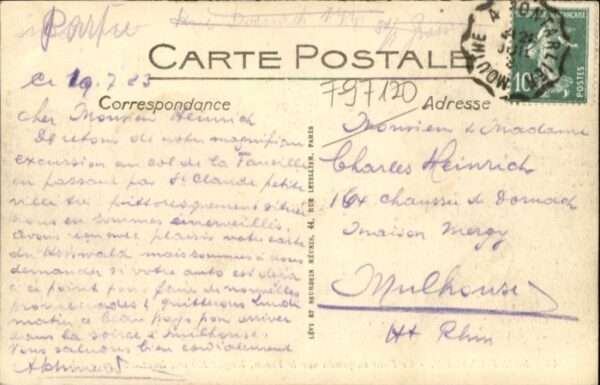 Partie
CARTE POSTALE
Correspondance
Adresse
797120
10
FRANÇAISE
POSTES
Ce 19.7 23
Cher Monsieur Heinrich
De retour de notre magnifique
excursion au col de la Faucille
en passant par St Claude petite
ville très pittoresquement située
nous en sommes émerveillés.
Avons reçu avec plaisir votre carte
du Hohwald mais sommes à nous
demander si votre auto est déjà
à ce point pour faire de nouvelles
promenades! quitterons lundi
matin ce beau pays pour arriver
dans la soirée à Mulhouse.
Vous saluons bien cordialement
LÉVY ET NEURDEIN RÉUNIS, 44, RUE LETELLIER, PARIS
Monsieur & Madame
Charles Heinrich
16x chaussée de Dornach
maison Mergy
Mulhouse
Ht Rhin